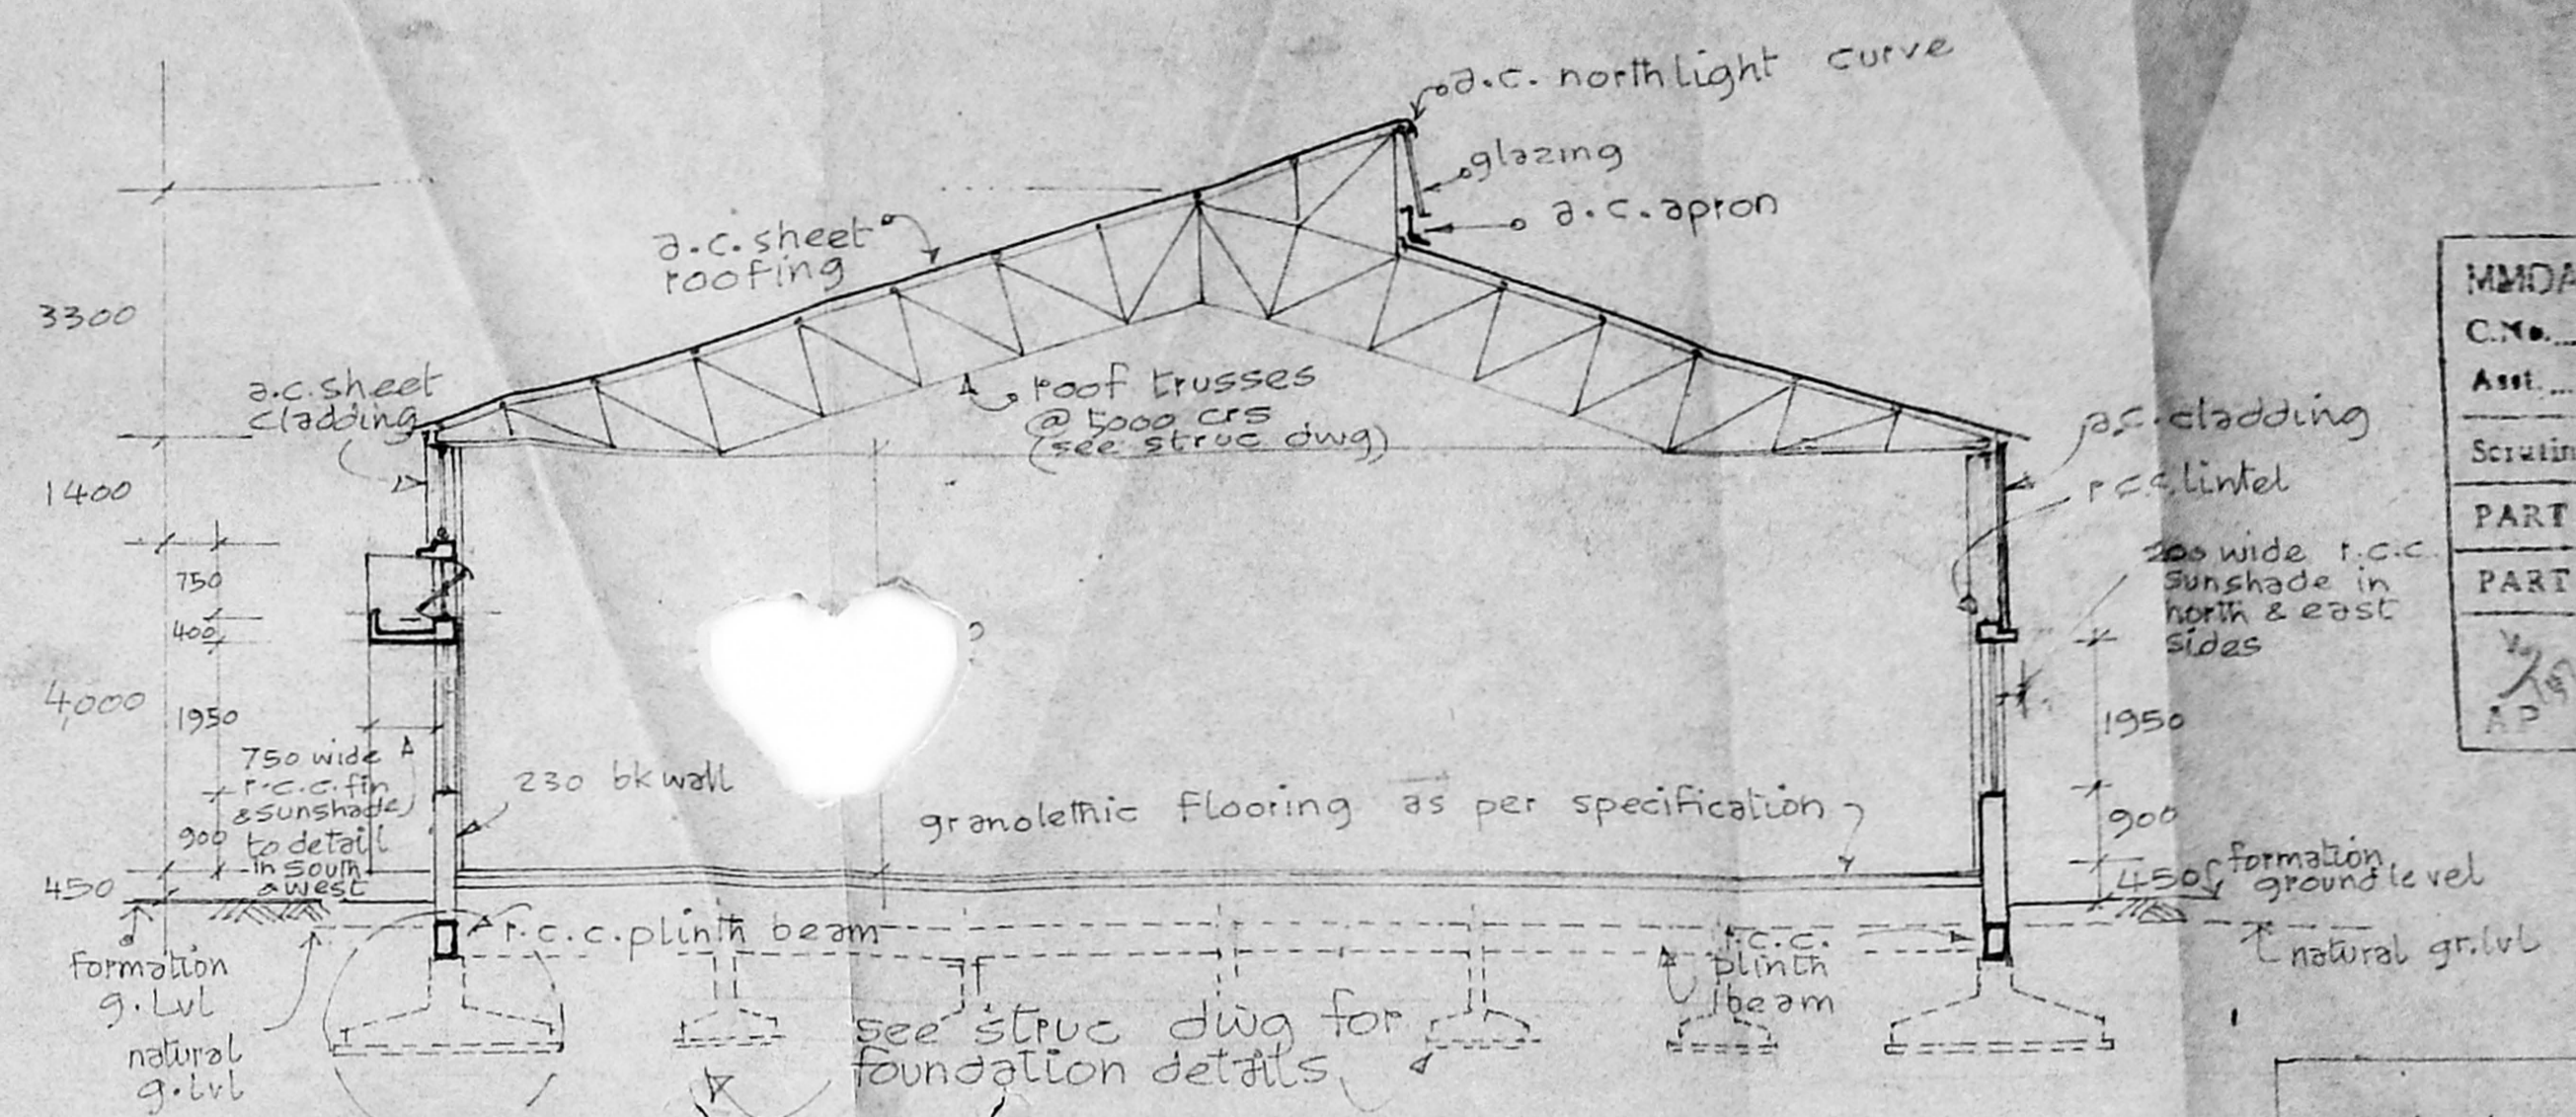 a.c. northlight curve
glazing
a.c. apron
a.c. sheet
roofing
3300
a.c. sheet
cladding
roof trusses
@ 5000 crs
(see struc dwg)
a.c. cladding
r.c.c. lintel
1400
750
400
4,000
1950
750 wide
r.c.c. fin
& sunshade
to detail
in south
& west
900
450
230 bk wall
granolethic flooring as per specification
200 wide r.c.c.
sunshade in
north & east
sides
1950
900
450
formation
ground level
natural gr.lvl
r.c.c. plinth beam
r.c.c.
plinth
beam
formation
g.lvl
natural
g.lvl
see struc dwg for
foundation details
MMDA
C.No.
Asst.
PART
PART